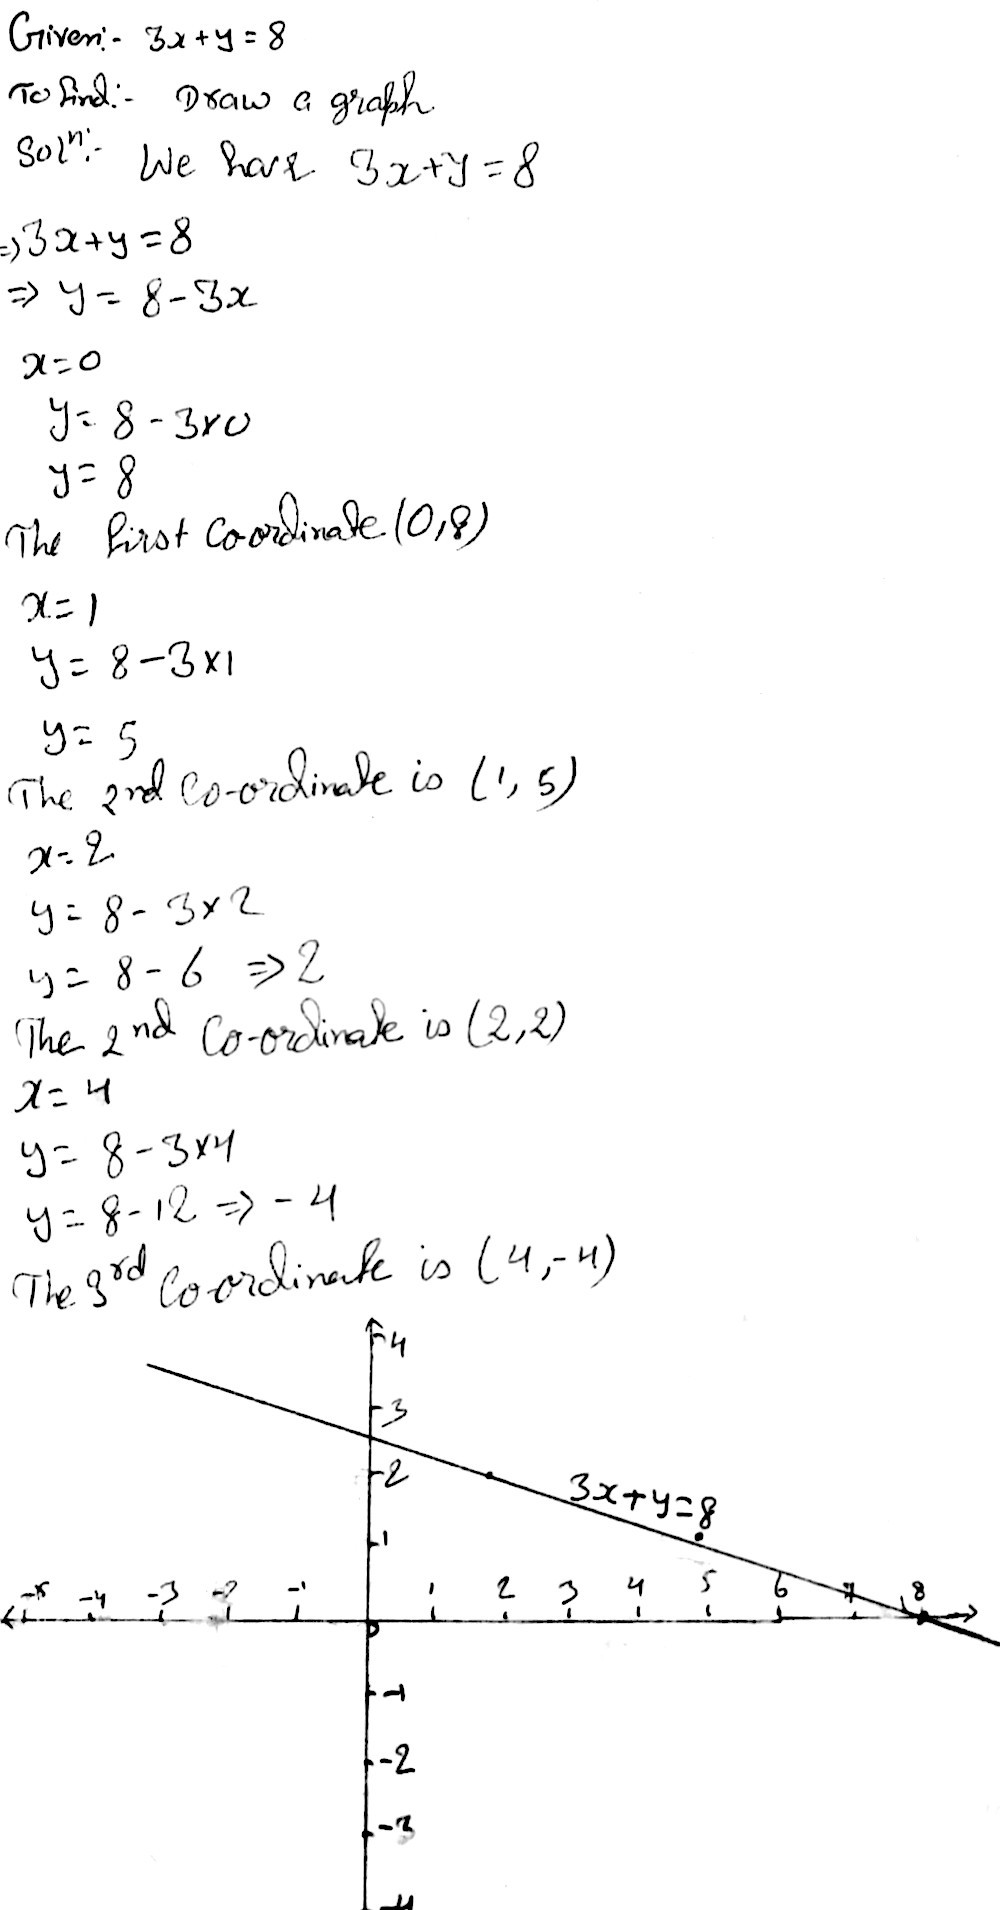 Given:- 3x+y=8
To find:- Draw a graph
Solⁿ:- We have 3x+y=8
⇒3x+y=8
⇒ y= 8-3x
x=0
y= 8-3×0
y= 8
The first Co-ordinate (0,8)
x=1
y= 8-3×1
y= 5
The 2nd Co-ordinate is (1, 5)
x=2
y= 8- 3×2
y= 8-6 ⇒2
The 2nd Co-ordinate is (2,2)
x=4
y= 8-3×4
y= 8-12 ⇒ -4
The 3rd Co-ordinate is (4,-4)
4
3
2
3x+y=8
1
-5 -4 -3 -2 -1 1 2 3 4 5 6 7 8
0
-1
-2
-3
-4